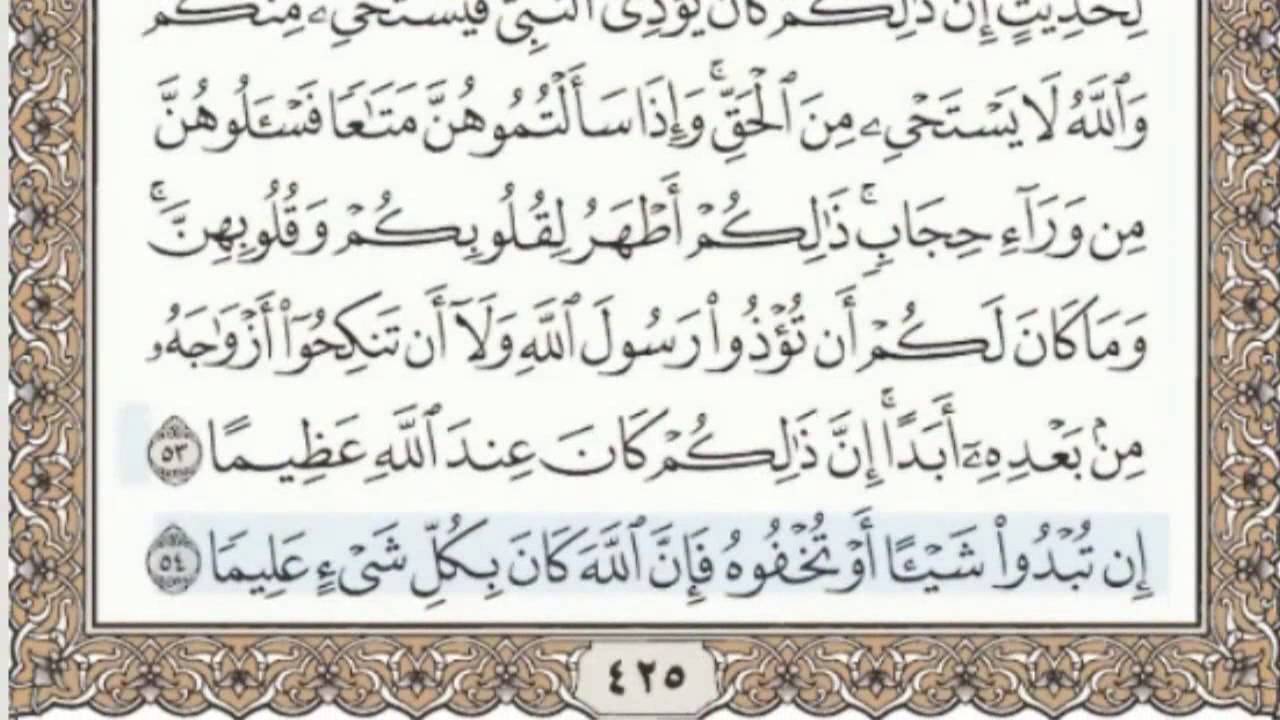 لِحَدِيثٍ إِنَّ ذَٰلِكُمْ كَانَ يُؤْذِى ٱلنَّبِىَّ فَيَسْتَحْىِۦ مِنكُمْ
وَٱللَّهُ لَا يَسْتَحْىِۦ مِنَ ٱلْحَقِّ ۚ وَإِذَا سَأَلْتُمُوهُنَّ مَتَٰعًا فَسْـَٔلُوهُنَّ
مِن وَرَآءِ حِجَابٍ ۚ ذَٰلِكُمْ أَطْهَرُ لِقُلُوبِكُمْ وَقُلُوبِهِنَّ ۚ
وَمَا كَانَ لَكُمْ أَن تُؤْذُوا۟ رَسُولَ ٱللَّهِ وَلَآ أَن تَنكِحُوٓا۟ أَزْوَٰجَهُۥ
مِنۢ بَعْدِهِۦٓ أَبَدًا ۚ إِنَّ ذَٰلِكُمْ كَانَ عِندَ ٱللَّهِ عَظِيمًا ٥٣
إِن تُبْدُوا۟ شَيْـًٔا أَوْ تُخْفُوهُ فَإِنَّ ٱللَّهَ كَانَ بِكُلِّ شَىْءٍ عَلِيمًا ٥٤
٤٢٥